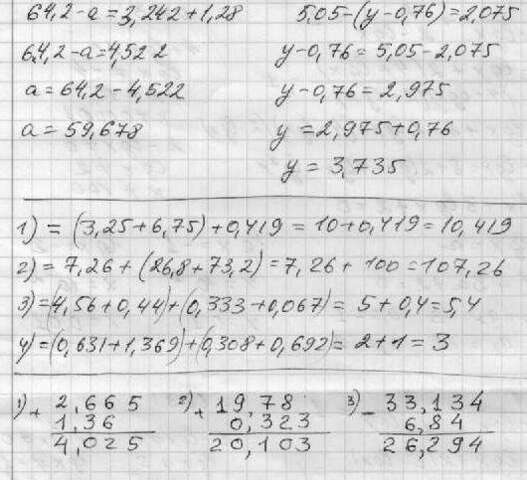 64,2-a=3,242+1,28
64,2-a=4,522
a=64,2-4,522
a=59,678
5,05-(y-0,76)=2,075
y-0,76=5,05-2,075
y-0,76=2,975
y=2,975+0,76
y=3,735
1) =(3,25+6,75)+0,419=10+0,419=10,419
2)=7,26+(26,8+73,2)=7,26+100=107,26
3)=(4,56+0,44)+(0,333+0,067)=5+0,4=5,4
4)=(0,631+1,369)+(0,308+0,692)=2+1=3
1) + 2,665
1,36
4,025
2) + 19,78
0,323
20,103
3) - 33,134
6,84
26,294